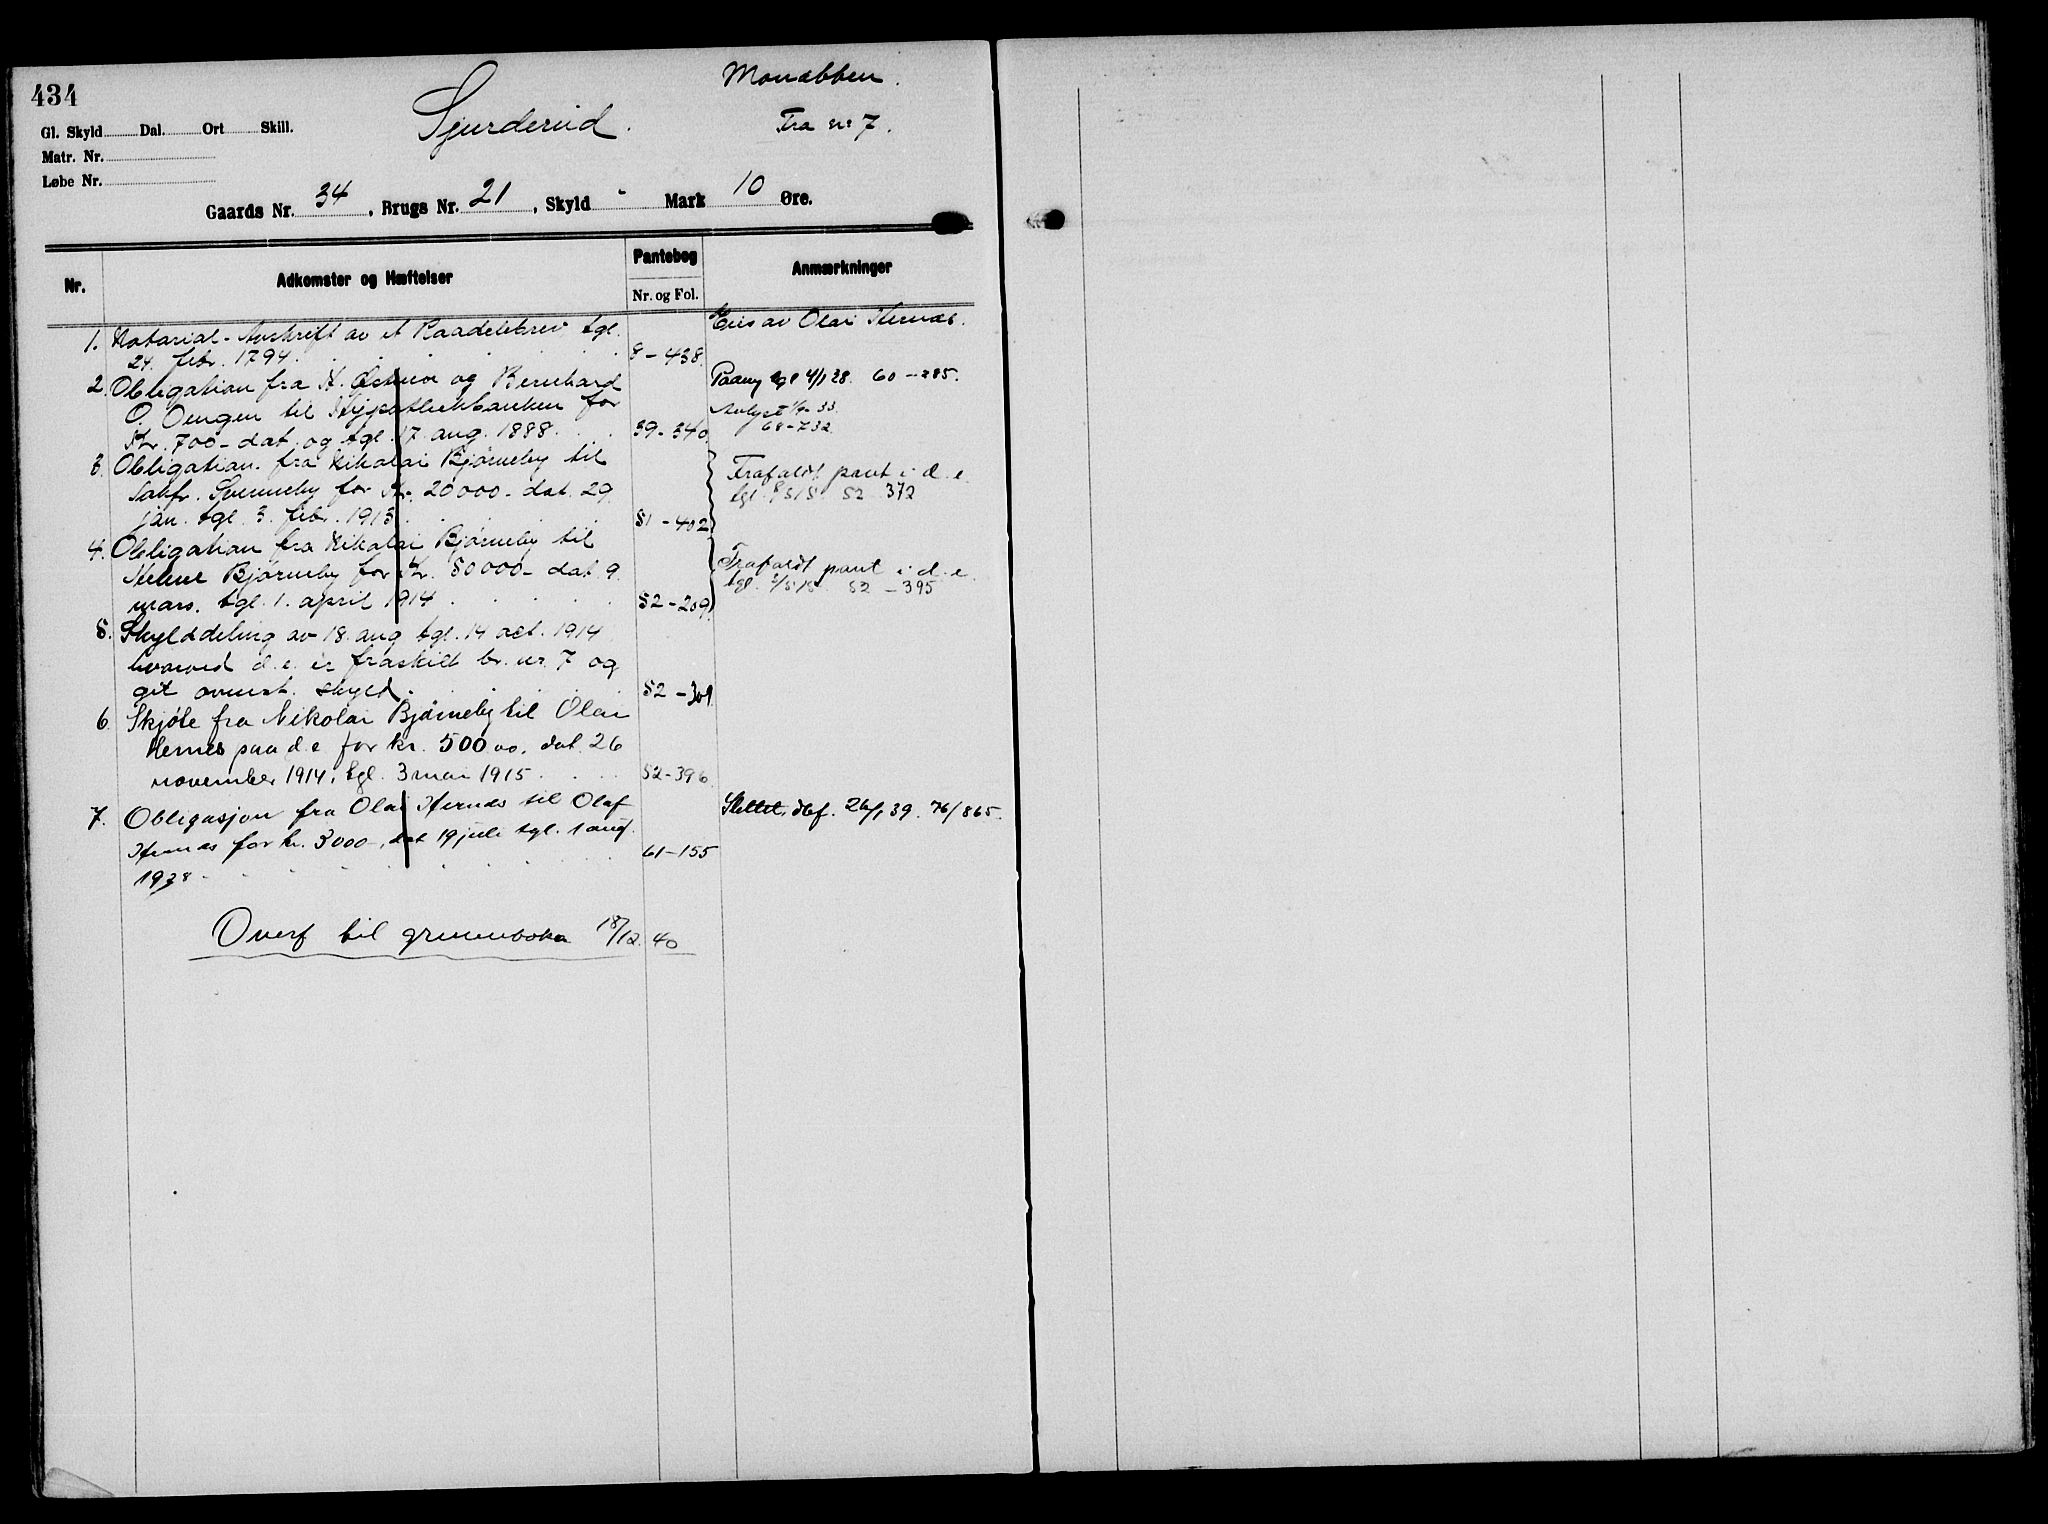 434
Gl. Skyld Dal. Ort Skill.
Matr. Nr.
Løbe Nr.
Sjurderud.
Monabben.
Fra nr 7.
Gaards Nr. 34, Brugs Nr. 21, Skyld - Mark 10 Øre.
Nr. Adkomster og Hæftelser Pantebog Nr. og Fol. Anmærkninger
Eies av Olai Hernæs.
1. Notarial-Avskrift av et Raadelebrev tgl.
24. febr. 1794. 8-438
2. Obligation fra H. og Bernhard
O. Oengen til Hypothekbanken for
Kr. 700- dat. og tgl. 17 aug. 1888. 39-340
Paany tgl 4/1 28. 60-285.
Avlyst 1/9-33.
68-732
3. Obligation fra Nikolai Bjørneby til
Sakfr. Svenneby for Kr. 20000- dat. 29
jan. tgl. 3. febr. 1913. 51-402
Frafaldt pant i d. e.
52 372
4. Obligation fra Nikolai Bjørneby til
Helene Bjørneby for Kr. 50000- dat. 9.
mars. tgl. 1. april 1914 52-209
Frafaldt pant i d. e.
tgl. 3/5 15. 52-395
5. Skylddeling av 18. aug tgl. 14 oct. 1914
hvorved d. e. er fraskilt br. nr. 7 og
git ovenst. skyld. 52-309
6. Skjøte fra Nikolai Bjørneby til Olai
Hernes paa d.e for kr. 500.00. dat. 26
november 1914, tgl. 3 mai 1915. 52-396
7. Obligasjon fra Olai Hernæs til Olaf
Hernæs for kr. 3000-, dat 19 juli tgl. 1 aug.
1928. 61-155
Slettet, dbf. 26/1 39. 76/865.
Overf til grunnboka 18/12. 40